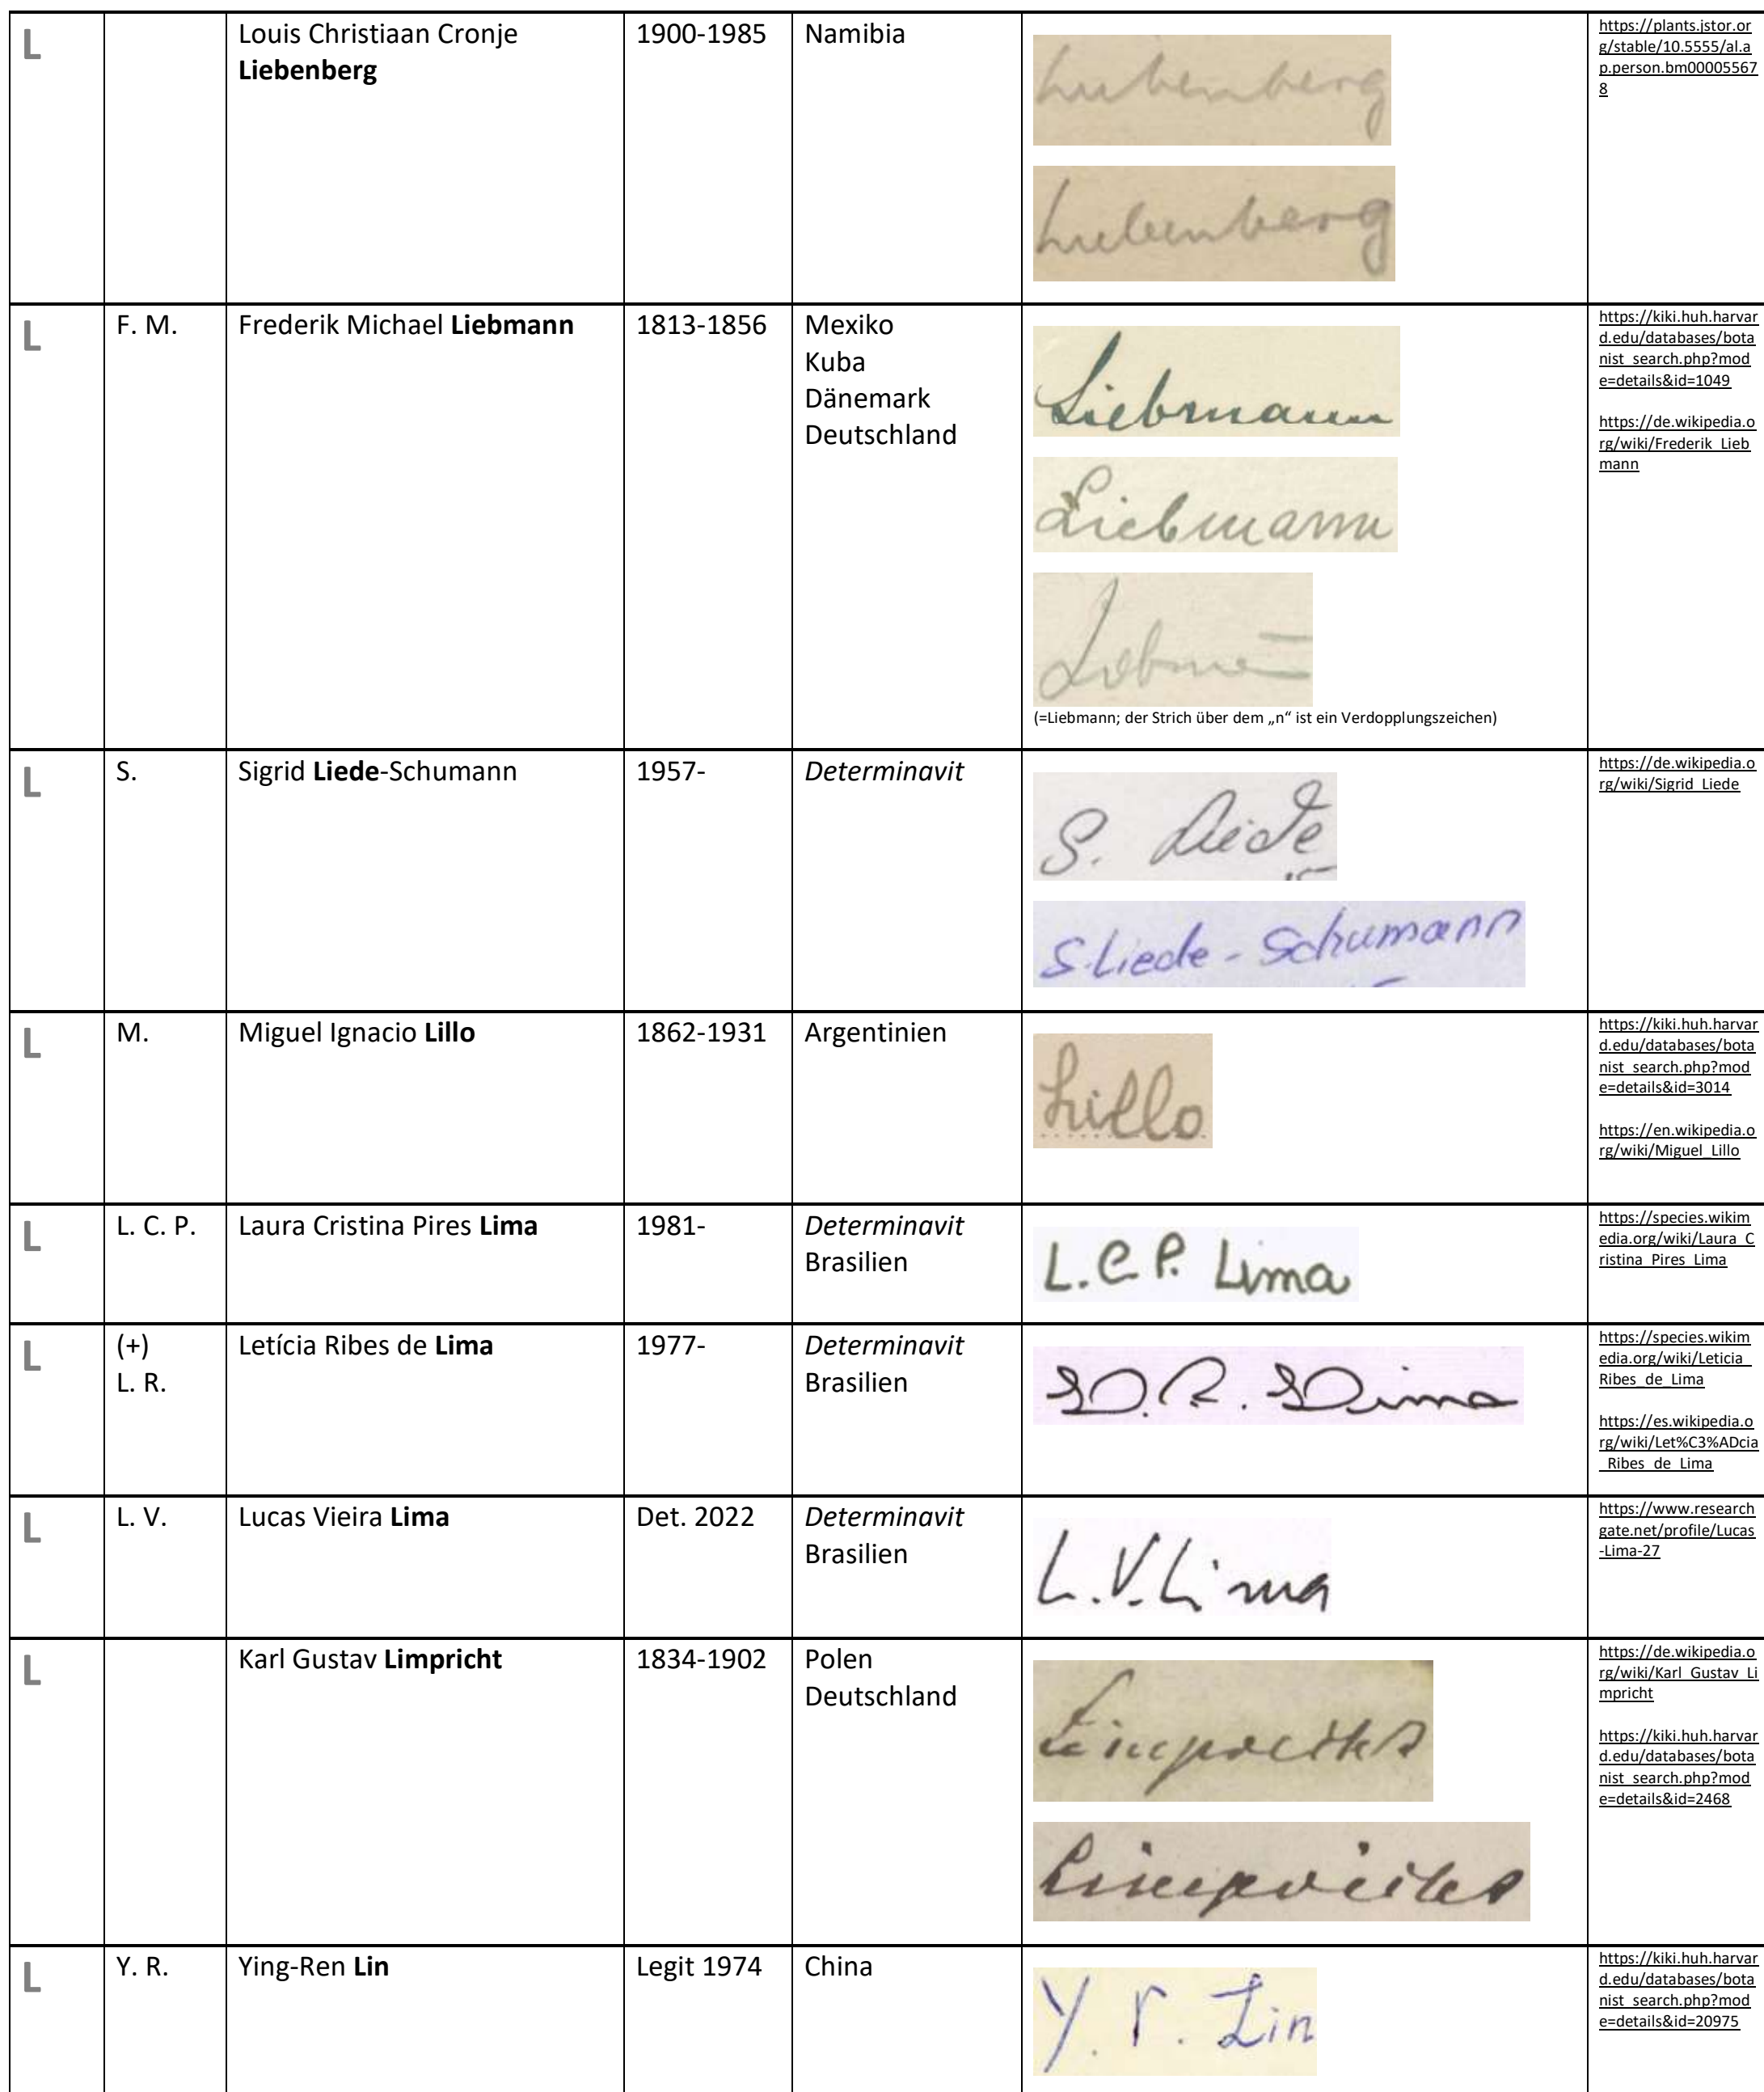 L
Louis Christiaan Cronje
Liebenberg
1900-1985
Namibia
Liebenberg
Liebenberg
https://plants.jstor.or
g/stable/10.5555/al.a
p.person.bm00005567
8
L
F. M.
Frederik Michael Liebmann
1813-1856
Mexiko
Kuba
Dänemark
Deutschland
Liebmann
Liebmann
(=Liebmann; der Strich über dem „n" ist ein Verdopplungszeichen)
https://kiki.huh.harvar
d.edu/databases/bota
nist_search.php?mod
e=details&id=1049
https://de.wikipedia.o
rg/wiki/Frederik_Lieb
mann
L
S.
Sigrid Liede-Schumann
1957-
Determinavit
S. Liede
S. Liede-Schumann
https://de.wikipedia.o
rg/wiki/Sigrid_Liede
L
M.
Miguel Ignacio Lillo
1862-1931
Argentinien
Lillo
https://kiki.huh.harvar
d.edu/databases/bota
nist_search.php?mod
e=details&id=3014
https://en.wikipedia.o
rg/wiki/Miguel_Lillo
L
L. C. P.
Laura Cristina Pires Lima
1981-
Determinavit
Brasilien
L.C.P. Lima
https://species.wikim
edia.org/wiki/Laura_C
ristina_Pires_Lima
L
(+)
L. R.
Letícia Ribes de Lima
1977-
Determinavit
Brasilien
L.R. Lima
https://species.wikim
edia.org/wiki/Leticia_
Ribes_de_Lima
https://es.wikipedia.o
rg/wiki/Let%C3%ADcia
_Ribes_de_Lima
L
L. V.
Lucas Vieira Lima
Det. 2022
Determinavit
Brasilien
L.V.Lima
https://www.research
gate.net/profile/Lucas
-Lima-27
L
Karl Gustav Limpricht
1834-1902
Polen
Deutschland
Limpricht
Limpricht
https://de.wikipedia.o
rg/wiki/Karl_Gustav_Li
mpricht
https://kiki.huh.harvar
d.edu/databases/bota
nist_search.php?mod
e=details&id=2468
L
Y. R.
Ying-Ren Lin
Legit 1974
China
Y. r. Lin
https://kiki.huh.harvar
d.edu/databases/bota
nist_search.php?mod
e=details&id=20975